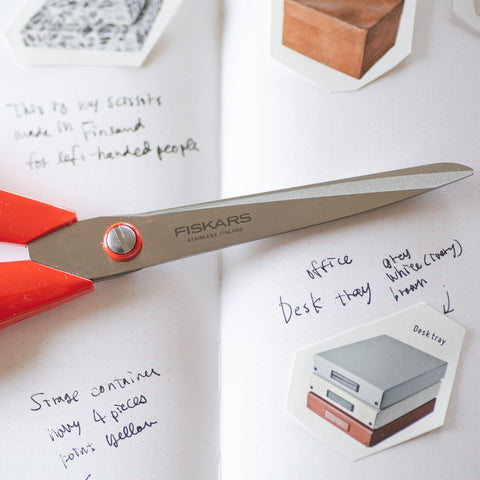 This is my scissors
made in Finland
for left-handed people
FISKARS
STAINLESS FINLAND
office
Desk tray
grey
white (ivory)
brown
Desk tray
Strage container
Navy 4 pieces
point yellow